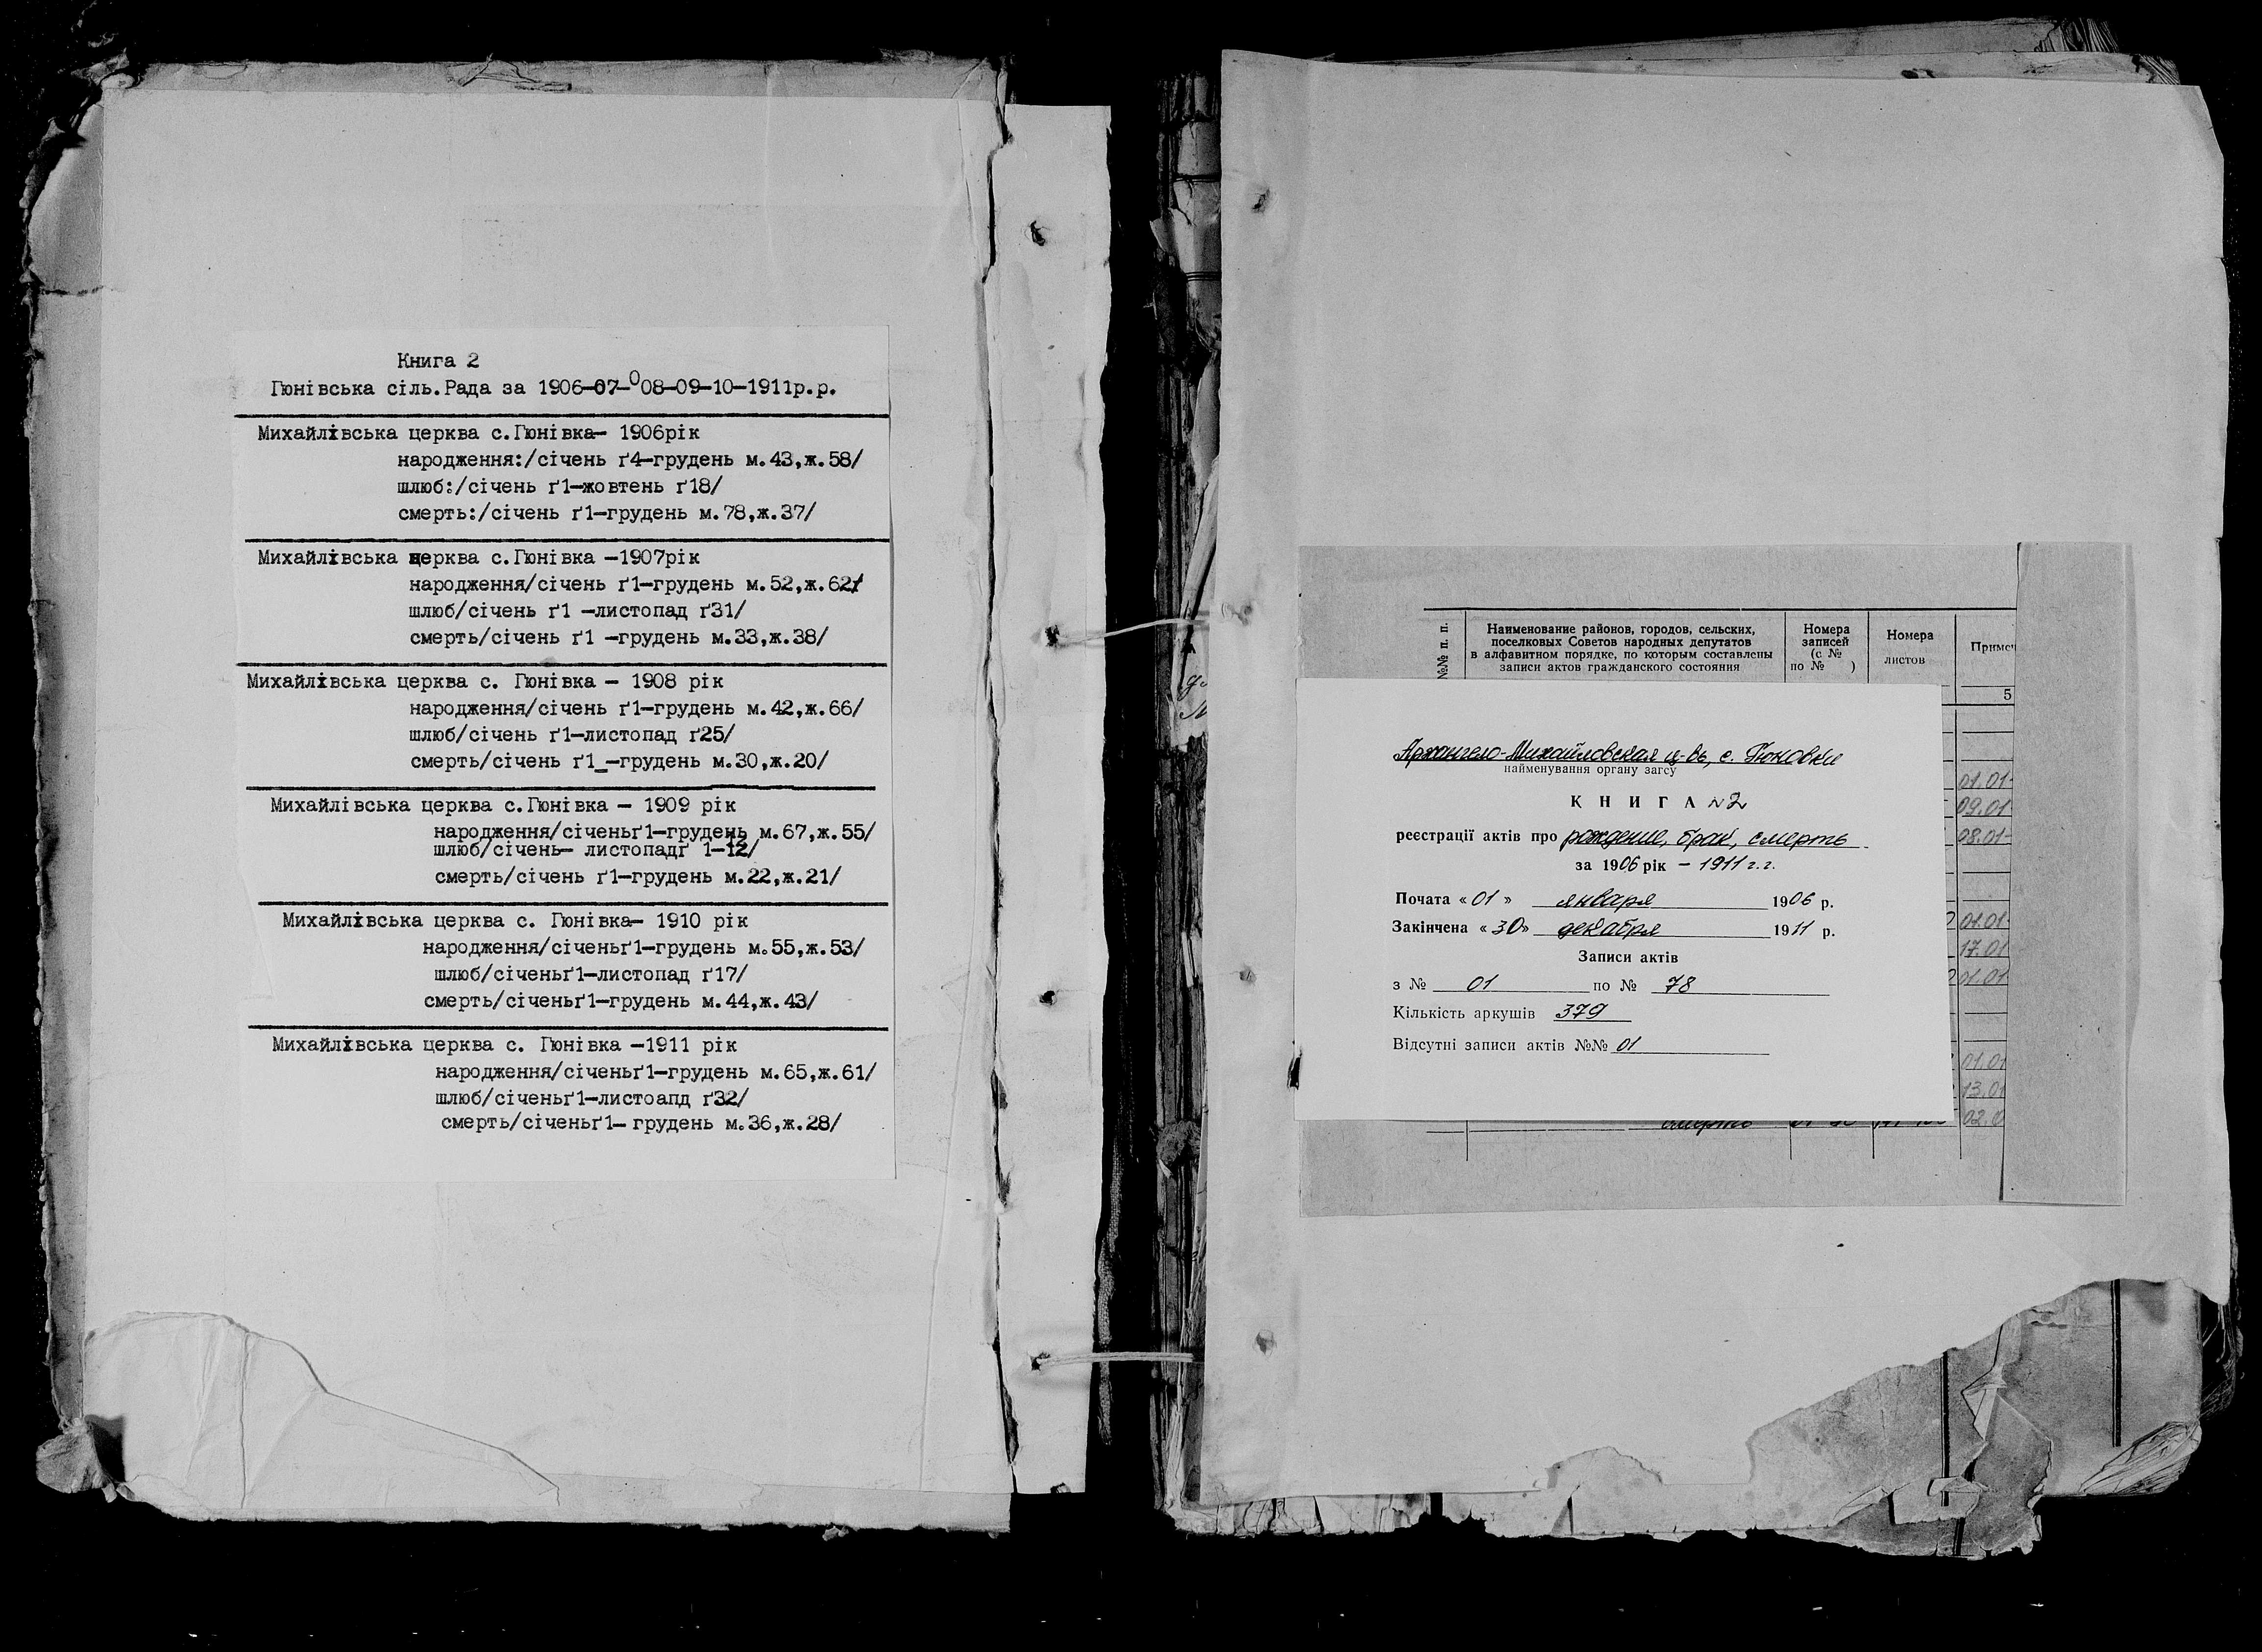 Книга 2
Гюнівська сіль.Рада за 1906-07-008-09-10-1911р.р.
Михайлівська церква с.Гюнівка- 1906рік
народження:/січень ґ4-грудень м.43,ж.58/
шлюб:/січень ґ1-жовтень ґ18/
смерть:/січень ґ1-грудень м.78,ж.37/
Михайлівська церква с.Гюнівка -1907рік
народження/січень ґ1-грудень м.52,ж.62/
шлюб/січень ґ1 -листопад ґ31/
смерть/січень ґ1 -грудень м.33,ж.38/
Михайлівська церква с. Гюнівка - 1908 рік
народження/січень ґ1-грудень м.42,ж.66/
шлюб/січень ґ1-листопад ґ25/
смерть/січень ґ1_-грудень м.30,ж.20/
Михайлівська церква с.Гюнівка - 1909 рік
народження/січеньґ1-грудень м.67,ж.55/
шлюб/січень- листопадґ 1-12/
смерть/січень ґ1-грудень м.22,ж.21/
Михайлівська церква с. Гюнівка- 1910 рік
народження/січеньґ1-грудень м.55,ж.53/
шлюб/січеньґ1-листопад ґ17/
смерть/січеньґ1-грудень м.44,ж.43/
Михайлівська церква с. Гюнівка -1911 рік
народження/січеньґ1-грудень м.65,ж.61/
шлюб/січеньґ1-листоапд ґ32/
смерть/січеньґ1- грудень м.36,ж.28/
№№ п. п.
Наименование районов, городов, сельских,
поселковых Советов народных депутатов
в алфавитном порядке, по которым составлены
записи актов гражданского состояния
Номера
записей
(с №
по № )
Номера
листов
Примеч
5
01.01-
09.01-
08.01-
01.01-
17.01
01.01-
01.01
13.01
02.0
смерть
Архангело-Михайловская ц-вь, с. Гюновки
найменування органу загсу
КНИГА №2
реєстрації актів про рождение, брак, смерть
за 1906 рік - 1911 г.г.
Почата «01» января 1906 р.
Закінчена «30» декабря 1911 р.
Записи актів
з № 01 по № 78
Кількість аркушів 379
Відсутні записи актів №№ 01